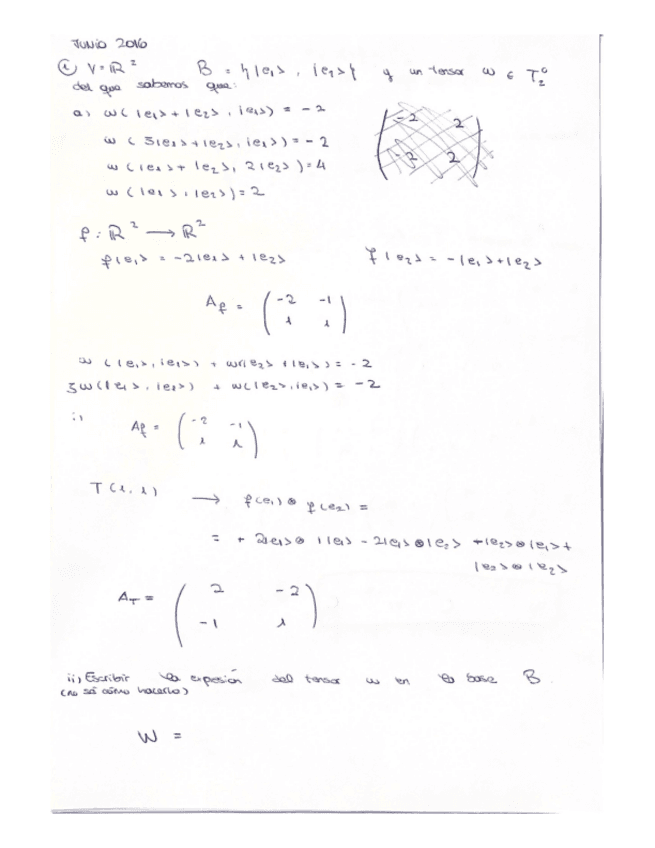 JUNIO 2016
① V=ℝ² B = {|e₁>, |e₂>} y un tensor ω ∈ T₂⁰
del que sabemos que:
a) ω(|e₁>+|e₂>, |e₁>) = -2
ω(3|e₁>+|e₂>, |e₁>) = -2
ω(|e₁>+|e₂>, 2|e₂>) = 4
ω(|e₁>, |e₂>) = 2
-2 2
-2 2
f: ℝ² → ℝ²
f|e₁> = -2|e₁> + |e₂> f|e₂> = -|e₁>+|e₂>
A_f = ( -2 -1
1 1 )
ω(|e₁>, |e₁>) + ω(|e₂>, |e₁>) = -2
3ω(|e₁>, |e₁>) + ω(|e₂>, |e₁>) = -2
i)
A_f = ( -2 -1
1 1 )
T(1,1) → f(e₁) ⊗ f(e₂) =
= + 2|e₁> ⊗ |e₁> - 2|e₁> ⊗ |e₂> + |e₂> ⊗ |e₁> +
|e₂> ⊗ |e₂>
A_T = ( 2 -2
-1 1 )
ii) Escribir la expesión del tensor ω en la base B.
(no sé cómo hacerlo)
W =